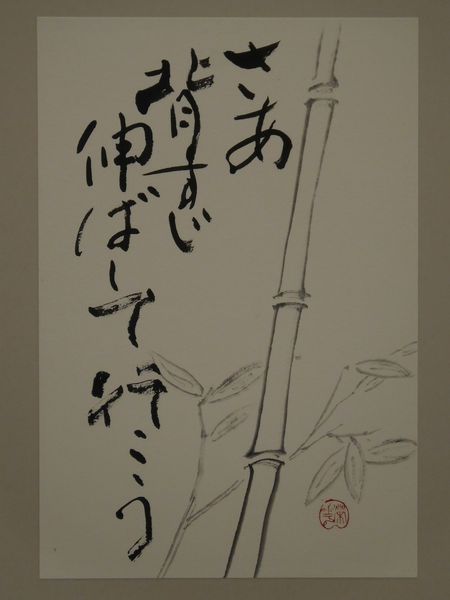 さあ
背すじ
伸ばして行こう